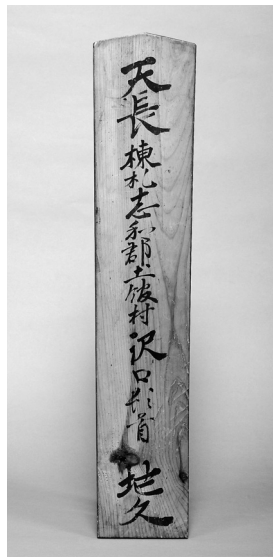 天長棟札志和郡土舘村沢口首地久